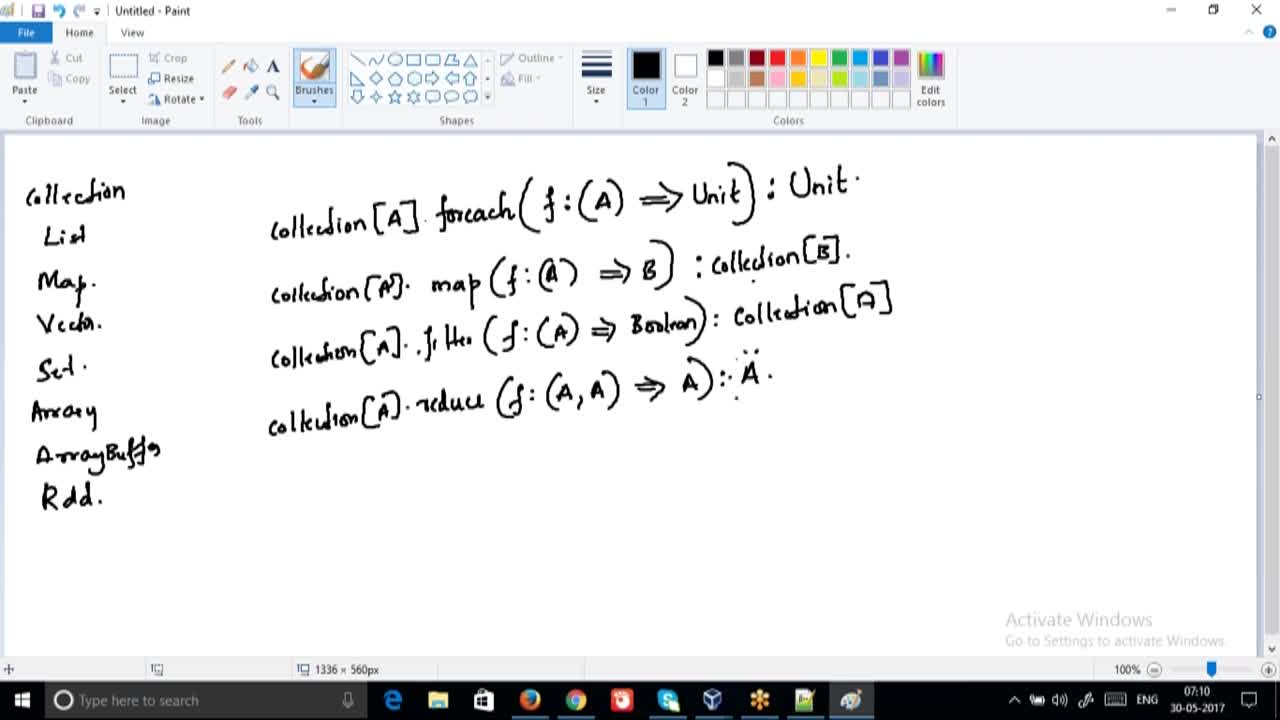 Untitled - Paint
File Home View
Paste Cut Copy Clipboard
Select Crop Resize Rotate Image
Tools
Brushes
Shapes
Outline Fill
Size
Color 1 Color 2
Edit colors
Colors
Collection
List
Map.
Vector.
Set.
Array
ArrayBuffer
Rdd.
Collection[A].foreach(f:(A) => Unit) : Unit.
Collection[A]. map(f:(A) => B) : Collection[B].
Collection[A]. filter (f:(A) => Boolean) : Collection[A]
Collection[A].reduce (f:(A,A) => A) : A.
Activate Windows
Go to Settings to activate Windows.
1336 × 560px
100%
Type here to search
ENG
07:10
30-05-2017